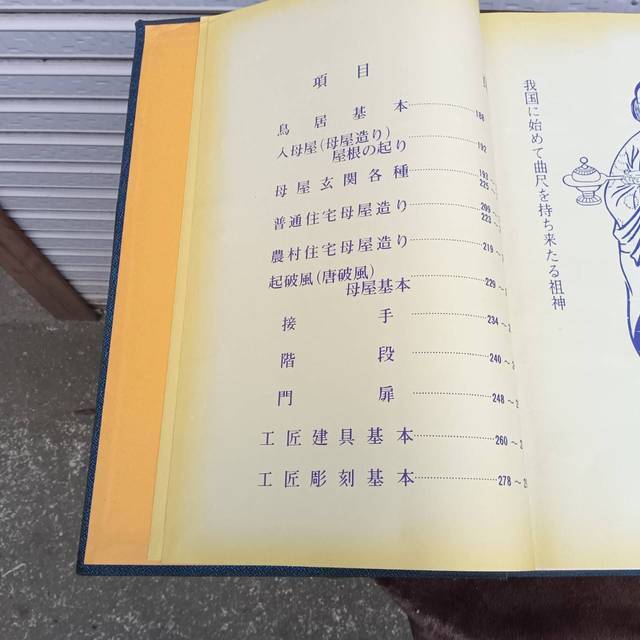 項目
鳥居基本……188
入母屋(母屋造り)
屋根の起り……192
母屋玄関各種……193～
225～
普通住宅母屋造り……209～
223～
農村住宅母屋造り……219～
起破風(唐破風)
母屋基本……229～
接手……234～
階段……240～
門扉……248～2
工匠建具基本……260～2
工匠彫刻基本……278～2
我国に始めて曲尺を持ち来たる祖神